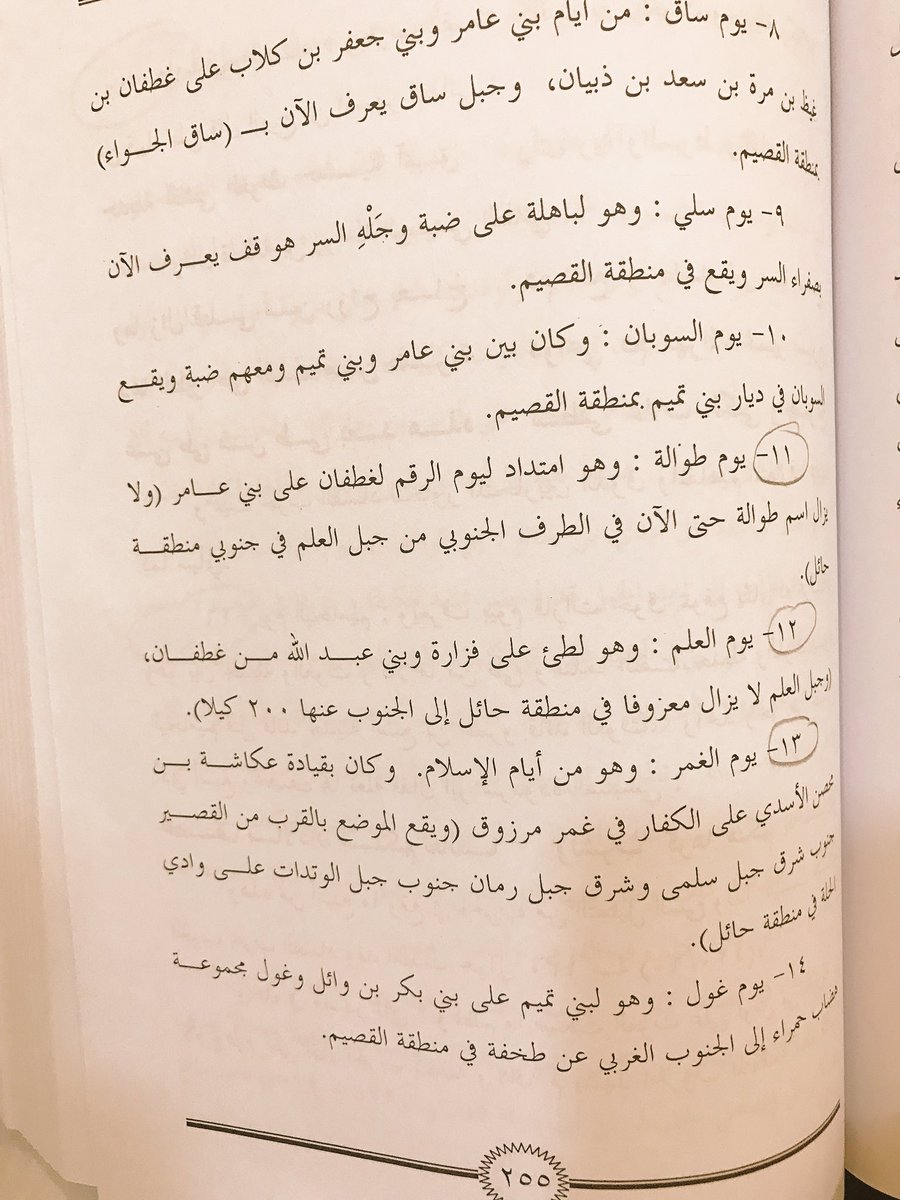 ٨- يوم ساق : من أيام بني عامر وبني جعفر بن كلاب على غطفان بن
غيظ بن مرة بن سعد بن ذبيان، وجبل ساق يعرف الآن بـ (ساق الجواء)
بمنطقة القصيم.
٩- يوم سلي : وهو لباهلة على ضبة وجَلْهِ السر هو قف يعرف الآن
بصفراء السر ويقع في منطقة القصيم.
١٠- يوم السوبان : وكان بين بني عامر وبني تميم ومعهم ضبة ويقع
السوبان في ديار بني تميم بمنطقة القصيم.
١١- يوم طوالة : وهو امتداد ليوم الرقم لغطفان على بني عامر (ولا
يزال اسم طوالة حتى الآن في الطرف الجنوبي من جبل العلم في جنوبي منطقة
حائل).
١٢- يوم العلم : وهو لطئ على فزارة وبني عبد الله من غطفان،
(وجبل العلم لا يزال معزوفا في منطقة حائل إلى الجنوب عنها ٢٠٠ كيلا).
١٣- يوم الغمر : وهو من أيام الإسلام. وكان بقيادة عكاشة بن
محصن الأسدي على الكفار في غمر مرزوق (ويقع الموضع بالقرب من القصير
جنوب شرق جبل سلمى وشرق جبل رمان جنوب جبل الوتدات على وادي
الحلة في منطقة حائل).
١٤- يوم غول : وهو لبني تميم على بني بكر بن وائل وغول مجموعة
هضاب حمراء إلى الجنوب الغربي عن طخفة في منطقة القصيم.
٢٥٥